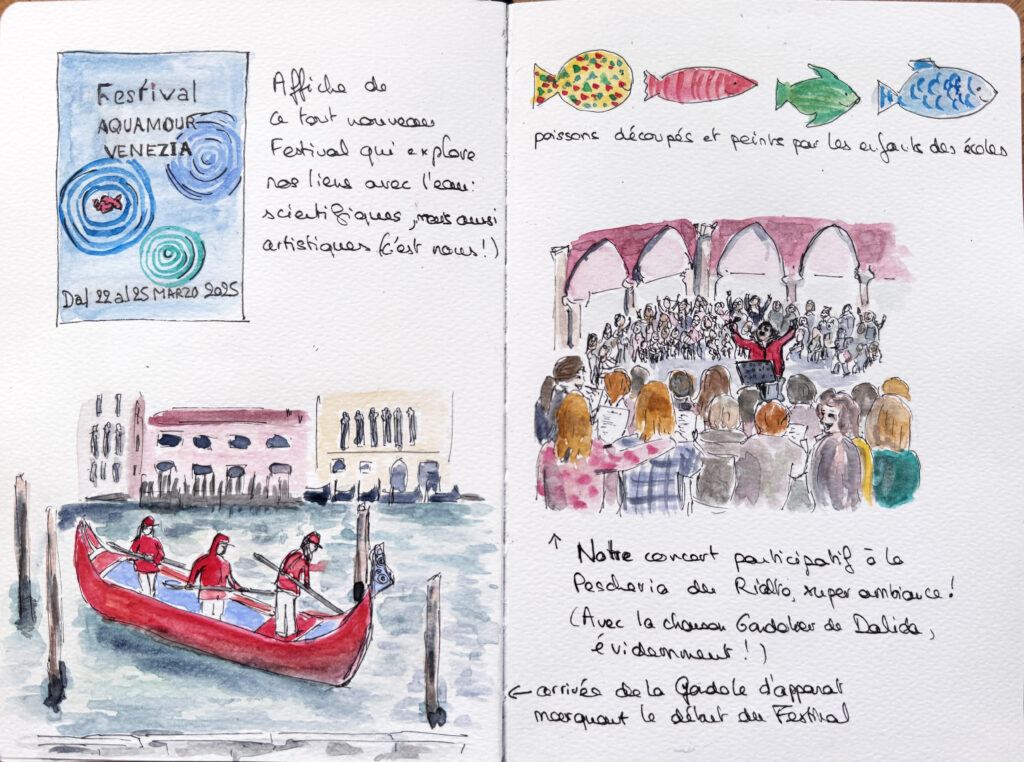 Festival
AQUAMOUR
VENEZIA
Dal 22 al 25 MARZO 2025
Affiche de
ce tout nouveau
Festival qui explore
nos liens avec l'eau:
scientifiques, mais aussi
artistiques (c'est nous!)
poissons découpés et peints par les enfants des écoles
↑ Notre concert participatif à la
Pescheria du Rialto, super ambiance!
(Avec la chanson Gondolier de Dalida,
évidemment!)
← arrivée de la Gondole d'apparat
marquant le début du Festival